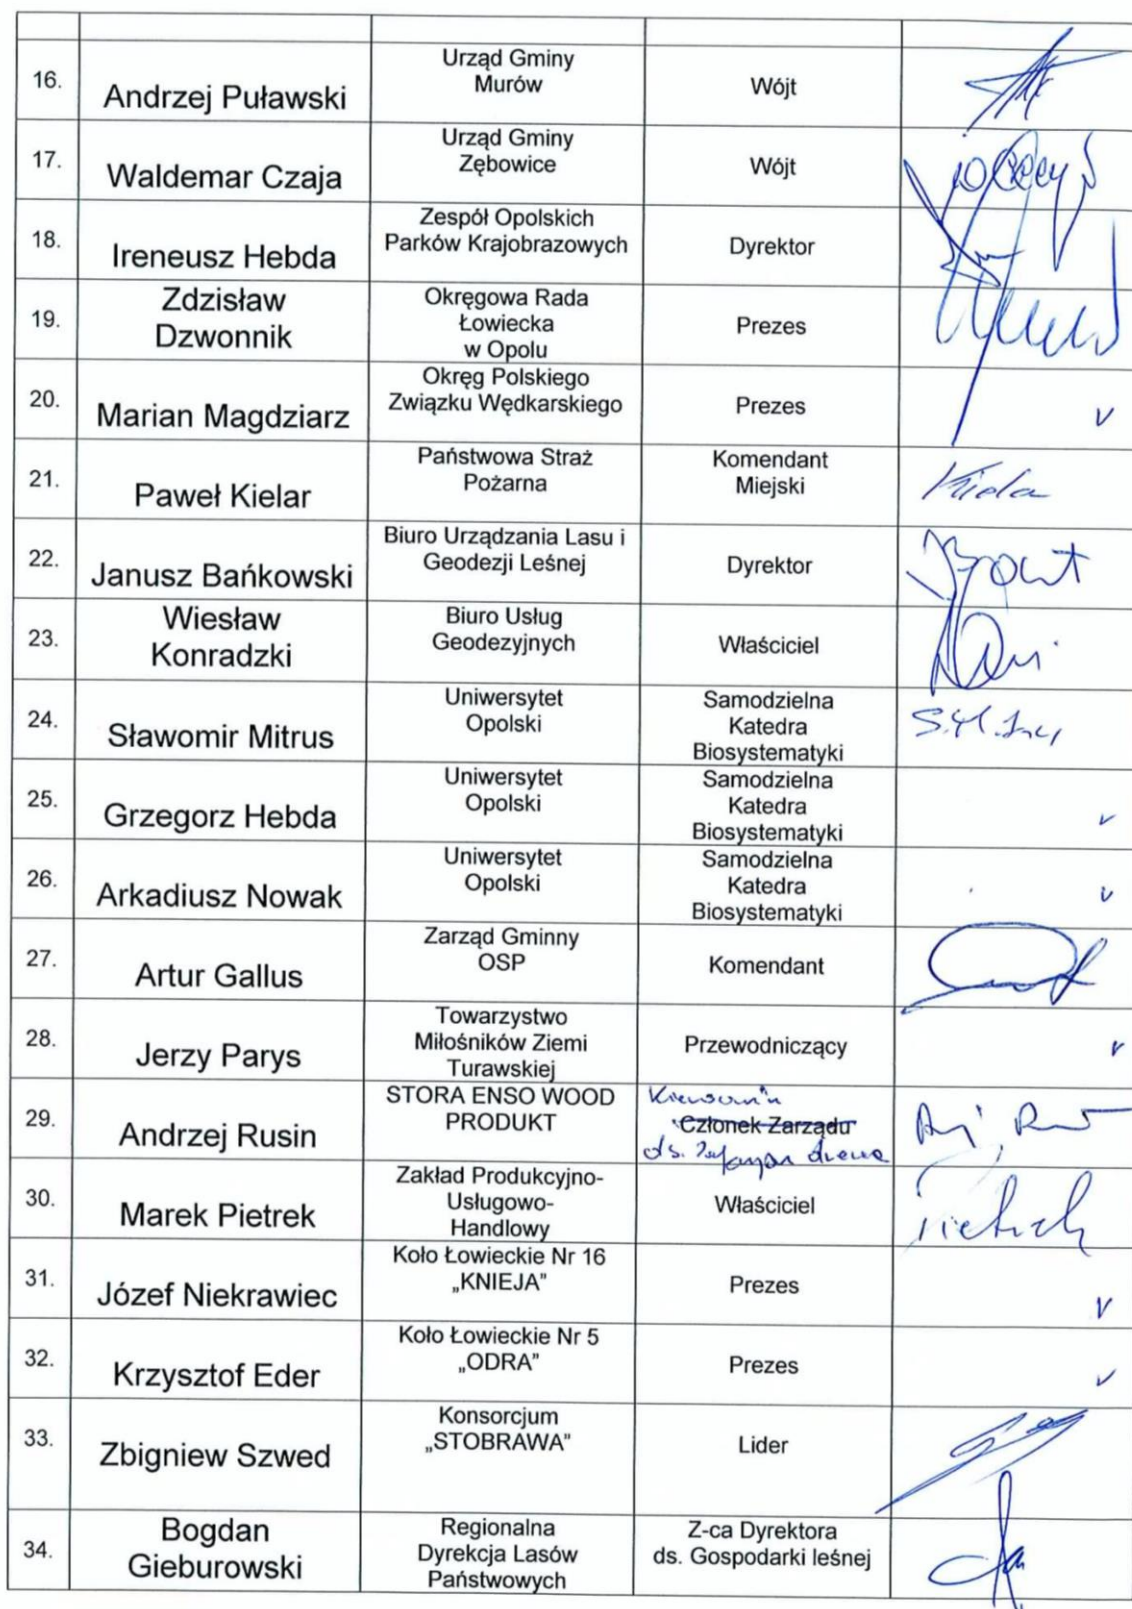 16.
Andrzej Puławski
Urząd Gminy
Murów
Wójt
17.
Waldemar Czaja
Urząd Gminy
Zębowice
Wójt
18.
Ireneusz Hebda
Zespół Opolskich
Parków Krajobrazowych
Dyrektor
19.
Zdzisław
Dzwonnik
Okręgowa Rada
Łowiecka
w Opolu
Prezes
20.
Marian Magdziarz
Okręg Polskiego
Związku Wędkarskiego
Prezes
21.
Paweł Kielar
Państwowa Straż
Pożarna
Komendant
Miejski
22.
Janusz Bańkowski
Biuro Urządzania Lasu i
Geodezji Leśnej
Dyrektor
23.
Wiesław
Konradzki
Biuro Usług
Geodezyjnych
Właściciel
24.
Sławomir Mitrus
Uniwersytet
Opolski
Samodzielna
Katedra
Biosystematyki
25.
Grzegorz Hebda
Uniwersytet
Opolski
Samodzielna
Katedra
Biosystematyki
26.
Arkadiusz Nowak
Uniwersytet
Opolski
Samodzielna
Katedra
Biosystematyki
27.
Artur Gallus
Zarząd Gminny
OSP
Komendant
28.
Jerzy Parys
Towarzystwo
Miłośników Ziemi
Turawskiej
Przewodniczący
29.
Andrzej Rusin
STORA ENSO WOOD
PRODUKT
Członek Zarządu
ds.
30.
Marek Pietrek
Zakład Produkcyjno-
Usługowo-
Handlowy
Właściciel
31.
Józef Niekrawiec
Koło Łowieckie Nr 16
„KNIEJA"
Prezes
32.
Krzysztof Eder
Koło Łowieckie Nr 5
„ODRA"
Prezes
33.
Zbigniew Szwed
Konsorcjum
„STOBRAWA"
Lider
34.
Bogdan
Gieburowski
Regionalna
Dyrekcja Lasów
Państwowych
Z-ca Dyrektora
ds. Gospodarki leśnej